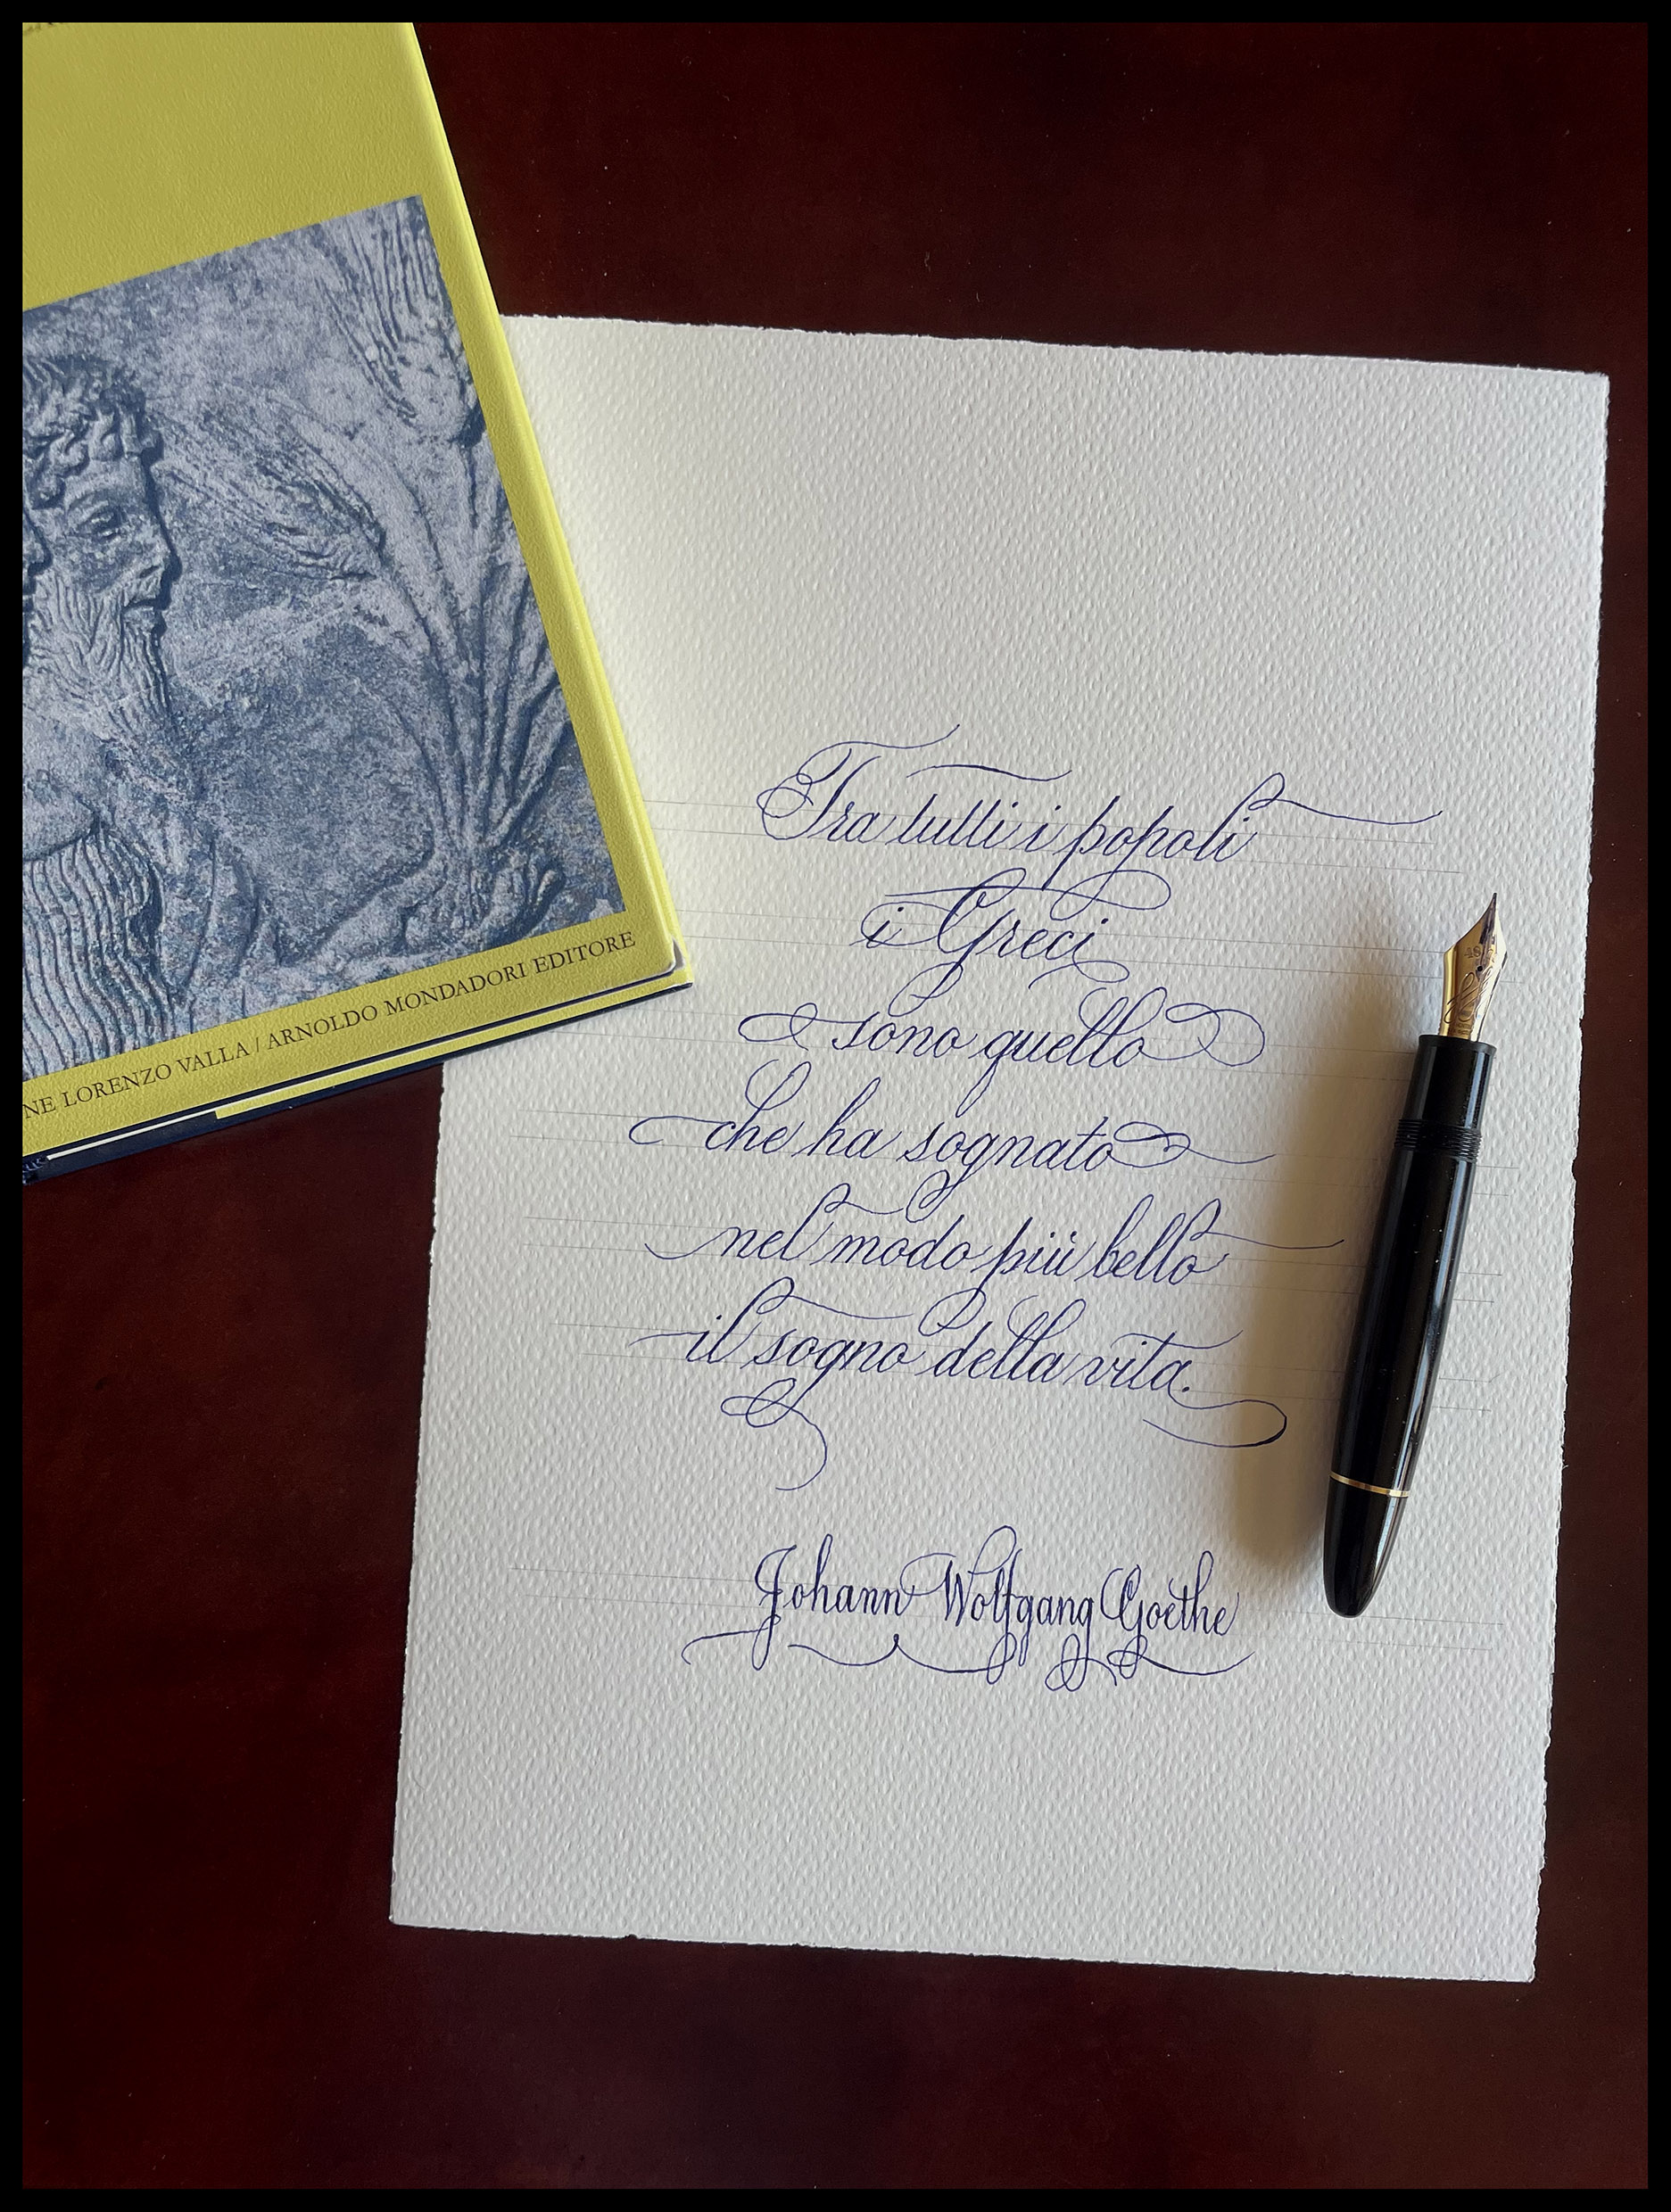 NE LORENZO VALLA / ARNOLDO MONDADORI EDITORE
Tra tutti i popoli
i Greci
sono quello
che ha sognato
nel modo più bello
il sogno della vita.
Johann Wolfgang Goethe